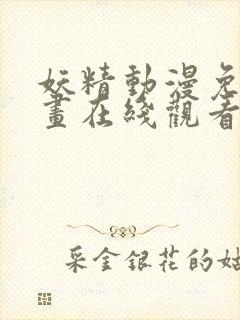 妖精動漫免
畫在綫觀看
采金銀花的姑